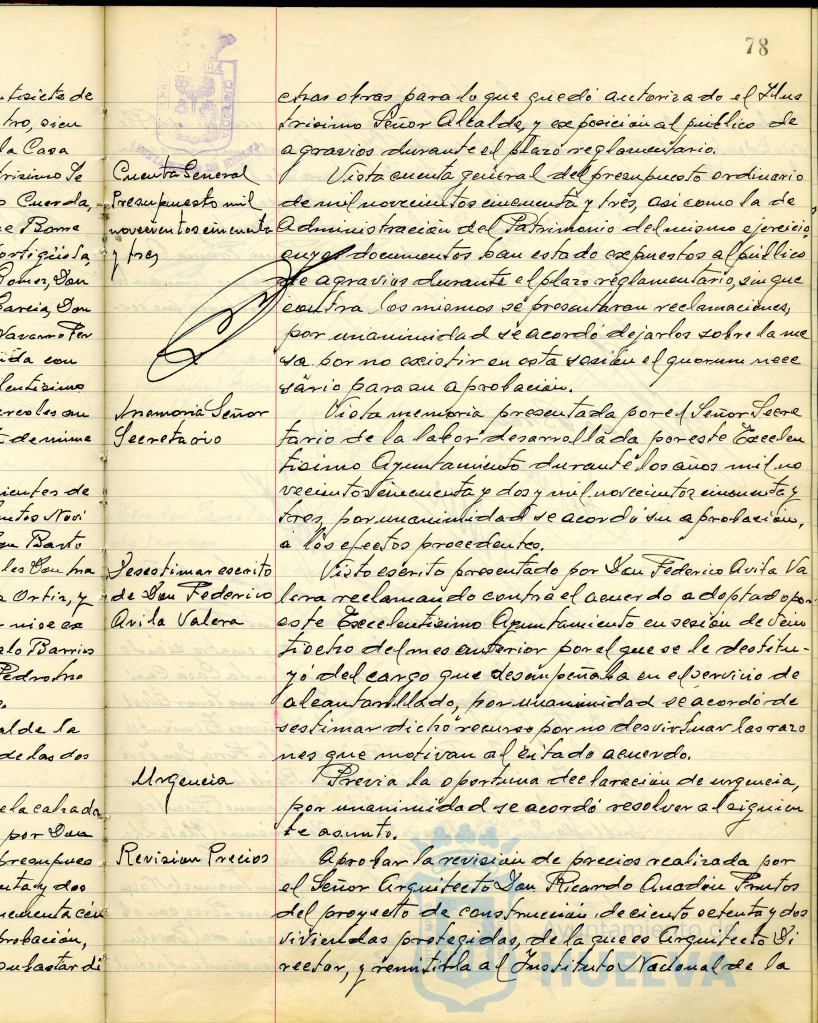 78
etras obras para lo que quedó autorizado el Ilus
trisimo Señor Alcalde, y exposición al público de
agravios durante el plazo reglamentario.
Cuenta General
Presupuesto mil
novecientos cincuenta
y tres
Vista cuenta general del presupuesto ordinario
de mil novecientos cincuenta y tres, asi como la de
Administración del Patrimonio del mismo ejercicio,
cuyos documentos han estado expuestos al público
de agravios durante el plazo reglamentario, sin que
contra los mismos se presentaran reclamaciones,
por unanimidad se acordó dejarlos sobre la me
sa por no existir en esta sesión el quorum nece
sário para su aprobación.
Memoria Señor
Secretario
Vista memoria presentada por el Señor Secre
tario de la labor desarrollada por este Excelen
tisimo Ayuntamiento durante los años mil no
vecientos cincuenta y dos y mil novecientos cincuenta y
tres, por unanimidad se acordó su aprobación,
a los efectos procedentes.
Desestimar escrito
de Don Federico
Avila Valera
Visto escrito presentado por Don Federico Avila Va
lera reclamando contra el acuerdo adoptado por
este Excelentisimo Ayuntamiento en sesión de vein
tiocho del mes anterior por el que se le destitu-
yó del cargo que desempeñaba en el servicio de
alcantarillado, por unanimidad se acordó de
sestimar dicho recurso por no desvirtuar las razo
nes que motivan al citado acuerdo.
Urgencia
Previa la oportuna declaración de urgencia,
por unanimidad se acordó resolver al siguien
te asunto.
Revision Precios
Aprobar la revisión de precios realizada por
el Señor Arquitecto Don Ricardo Anadón Frutos
del proyecto de construcción de ciento setenta y dos
viviendas protegidas, de la que es Arquitecto Di
rector, y remitirla al Instituto Nacional de la
Ayuntamiento de
HUELVA